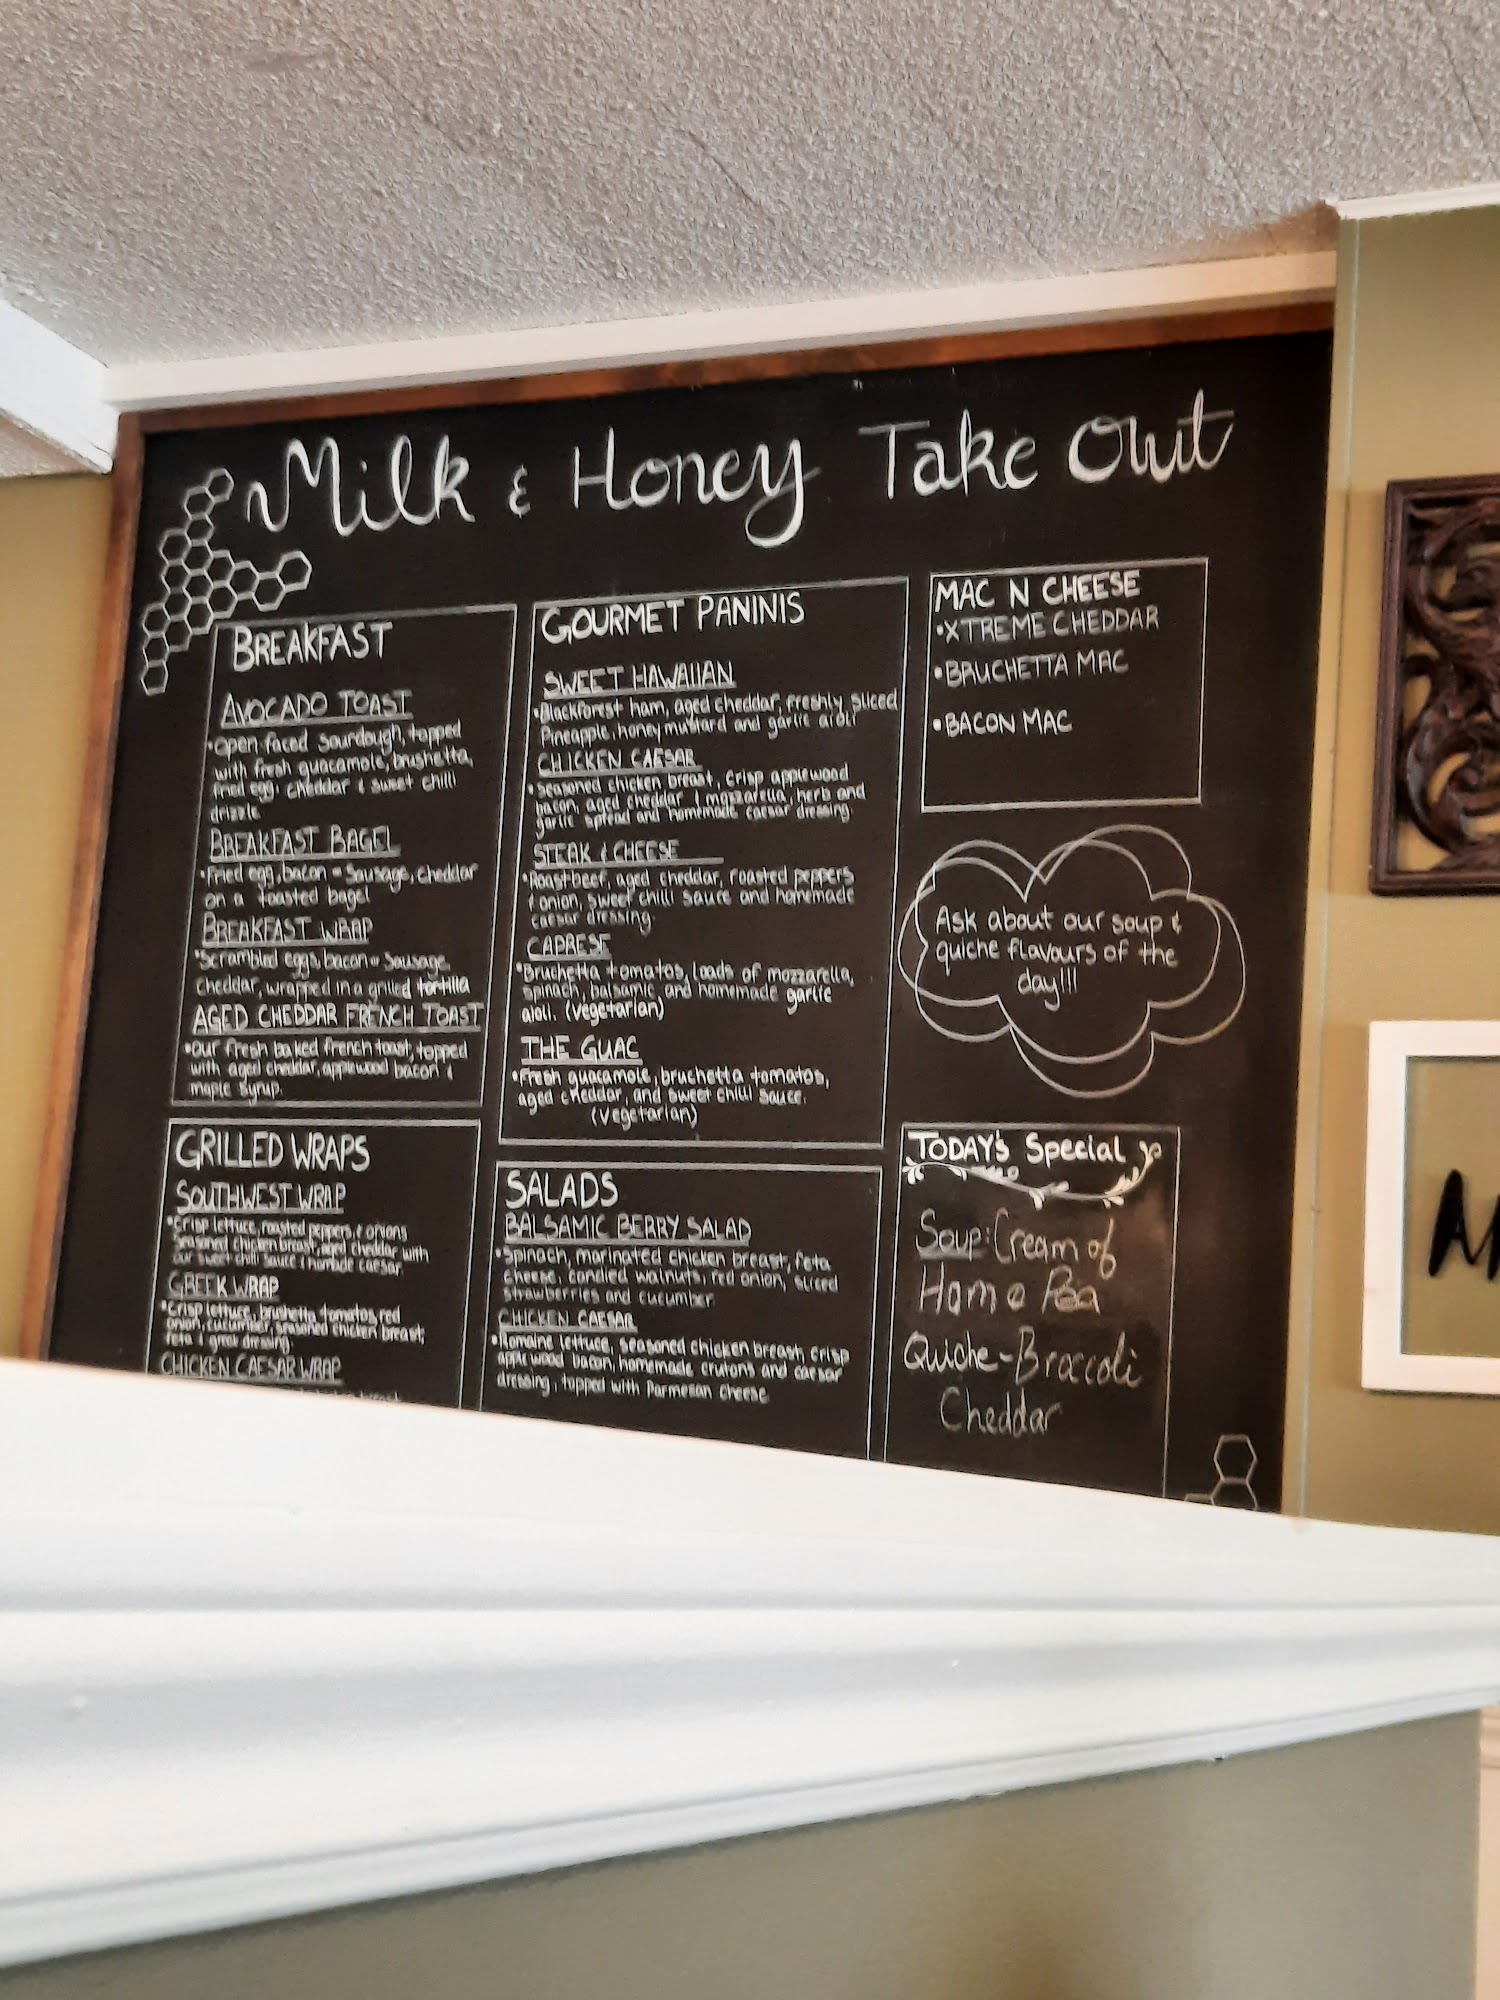 Milk & Honey Take Out
BREAKFAST
AVOCADO TOAST
•Open faced sourdough, topped
with fresh guacamole, brushetta,
fried egg, cheddar & sweet chili
drizzle
BREAKFAST BAGEL
•Fried egg, bacon or Sausage, cheddar
on a toasted bagel
BREAKFAST WRAP
•Scrambled eggs, bacon or Sausage,
cheddar, wrapped in a grilled tortilla
AGED CHEDDAR FRENCH TOAST
•Our fresh baked french toast, topped
with aged cheddar, applewood bacon &
maple syrup.
GRILLED WRAPS
SOUTHWEST WRAP
•Crisp lettuce, roasted peppers, & onions
Seasoned chicken breast, aged cheddar with
our sweet chili sauce & caesar.
GREEK WRAP
•Crisp lettuce, brushetta, tomatos, red
onion, cucumber, seasoned chicken breast,
feta & greek dressing.
CHICKEN CAESAR WRAP
GOURMET PANINIS
SWEET HAWAIIAN
•Blackforest ham, aged cheddar, freshly sliced
Pineapple, honey mustard and garlic aioli
CHICKEN CAESAR
•Seasoned chicken breast, crisp applewood
bacon, aged cheddar & mozzarella, herb and
garlic spread and homemade caesar dressing.
STEAK & CHEESE
•Roast beef, aged cheddar, roasted peppers
& onion, sweet chilli sauce and homemade
caesar dressing.
CAPRESE
•Bruchetta tomatos, loads of mozzarella,
spinach, balsamic and homemade garlic
aioli. (Vegetarian)
THE GUAC
•Fresh guacamole, bruchetta tomatos,
aged cheddar, and sweet chilli sauce.
(Vegetarian)
SALADS
BALSAMIC BERRY SALAD
•Spinach, marinated chicken breast, feta
cheese, candied walnuts, red onion, sliced
strawberries and cucumber.
CHICKEN CAESAR
•Romaine lettuce, seasoned chicken breast, crisp
applewood bacon, homemade crutons and caesar
dressing, topped with Parmesan cheese
MAC N CHEESE
•XTREME CHEDDAR
•BRUCHETTA MAC
•BACON MAC
Ask about our soup &
quiche flavours of the
day!!!
TODAY's Special
Soup: Cream of
Ham & Pea
Quiche-Broccoli
Cheddar